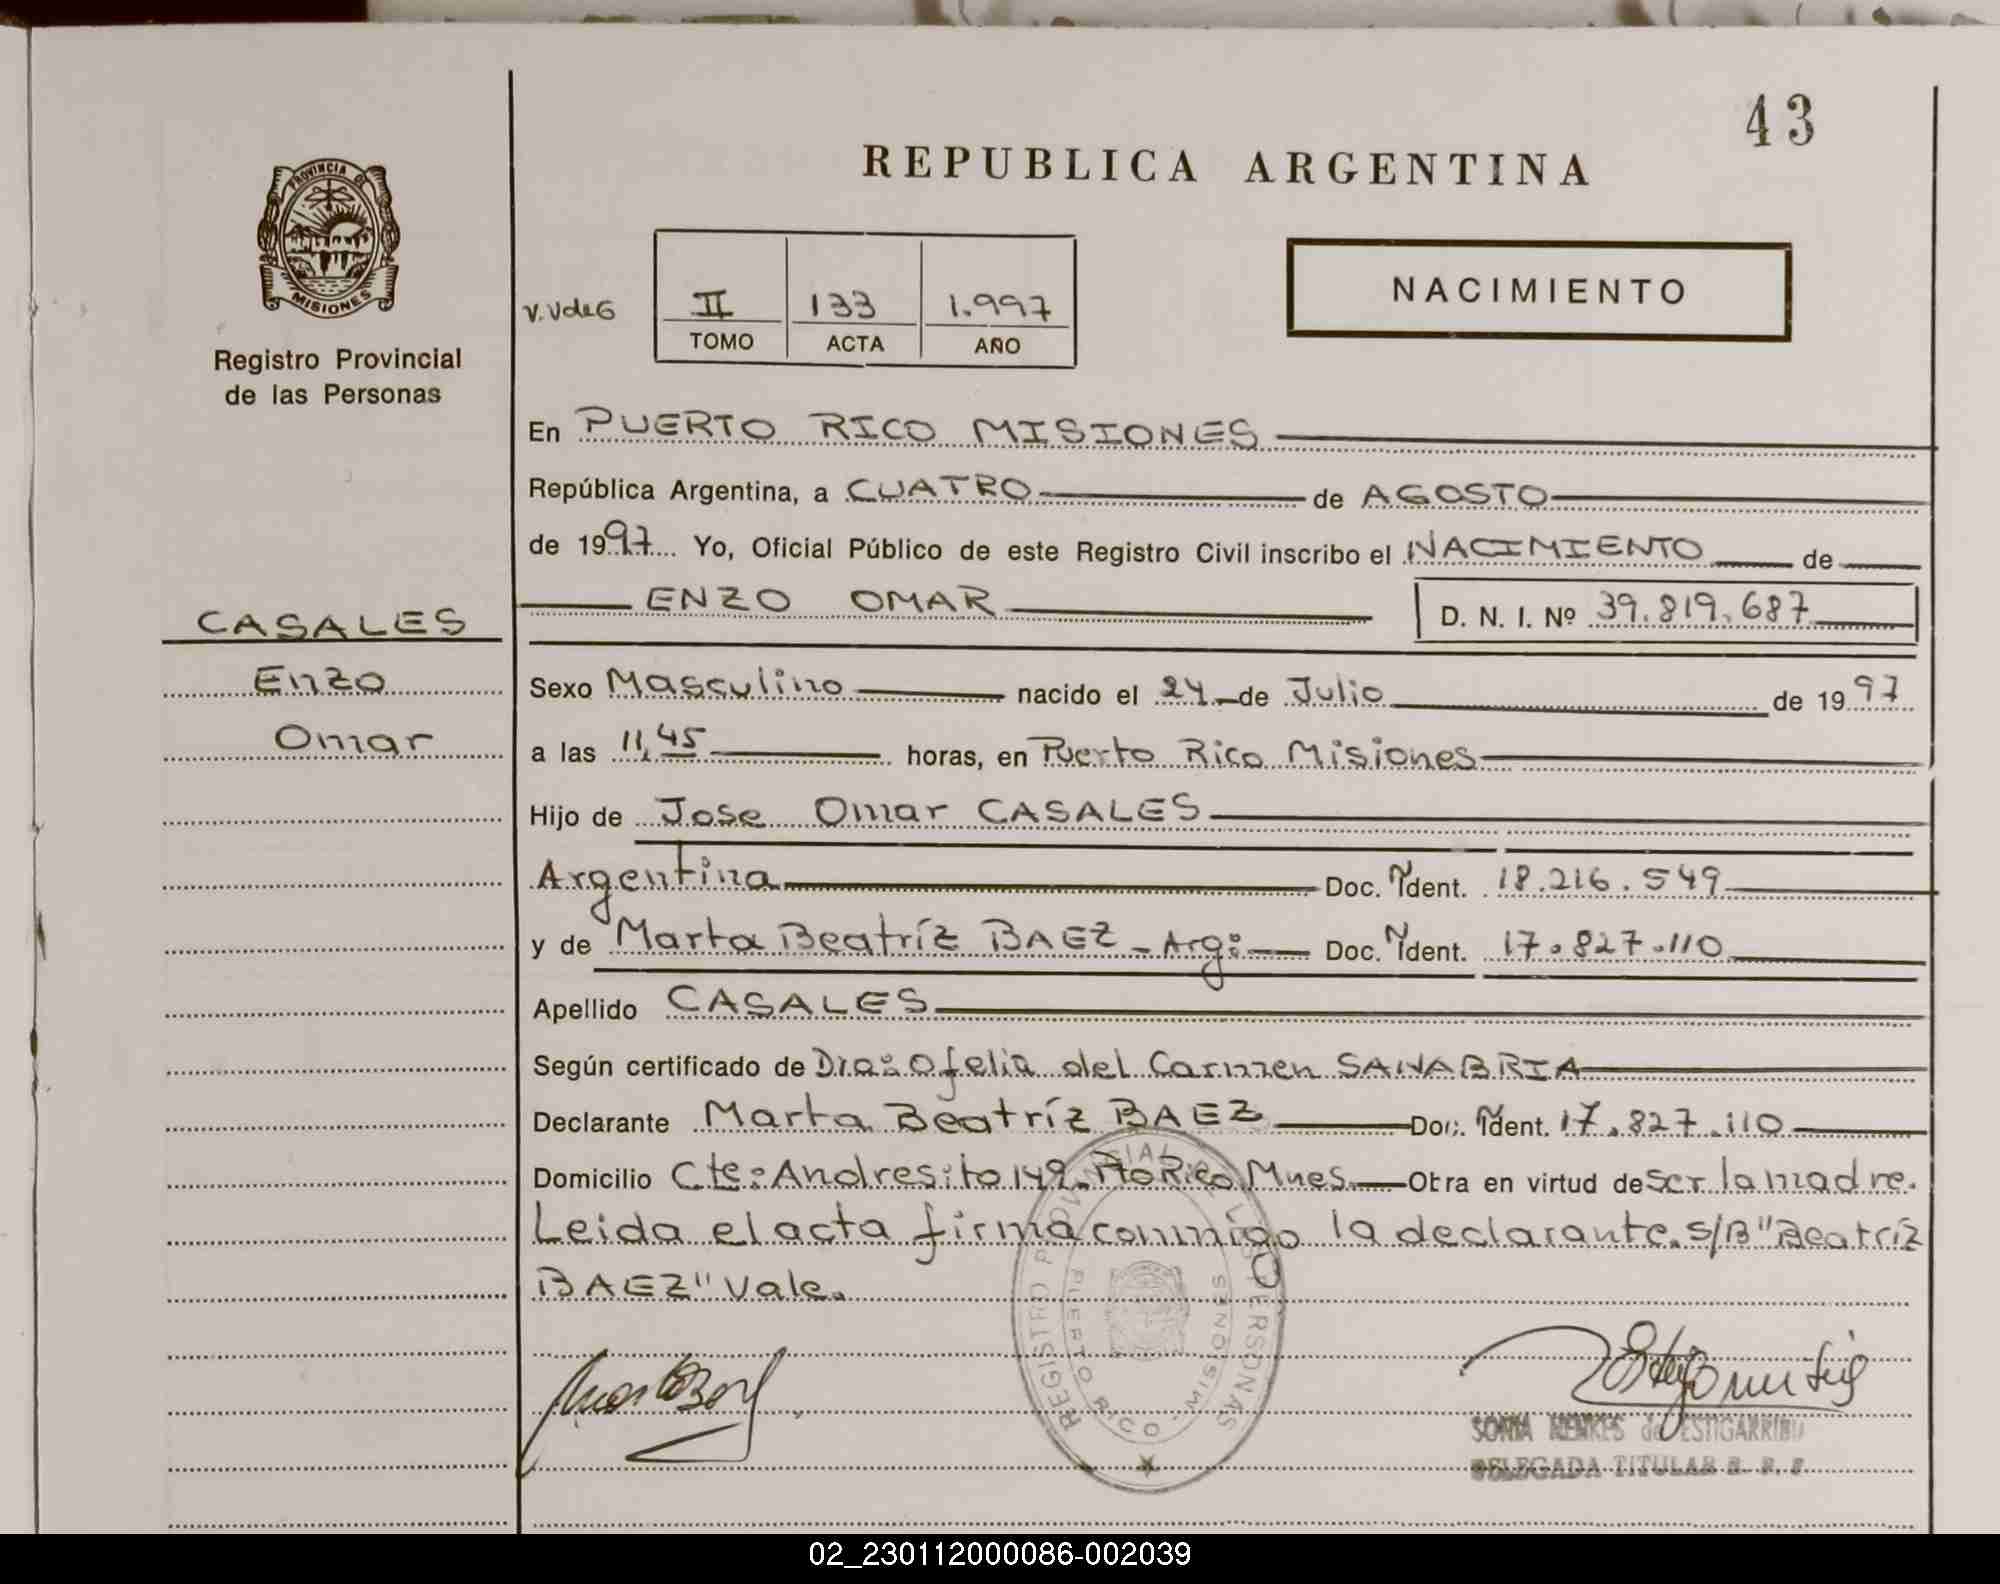 43
REPUBLICA ARGENTINA
PROVINCIA DE
MISIONES
Registro Provincial
de las Personas
V. V de G
II 133 1.997
TOMO ACTA AÑO
NACIMIENTO
En PUERTO RICO MISIONES
República Argentina, a CUATRO de AGOSTO
de 1997 Yo, Oficial Público de este Registro Civil inscribo el NACIMIENTO de
ENZO OMAR D. N. I. Nº 39.819.687
CASALES
Enzo
Omar
Sexo Masculino nacido el 24 de Julio de 1997
a las 11,45 horas, en Puerto Rico Misiones
Hijo de Jose Omar CASALES
Argentina Doc. Ident. 18.216.549
y de Marta Beatríz BAEZ - Arg: Doc. Ident. 17.827.110
Apellido CASALES
Según certificado de Dra: Ofelia del Carmen SANABRIA
Declarante Marta Beatríz BAEZ Doc. Ident. 17.827.110
Domicilio Cte: Andresito 149. Pto Rico Mnes. Obra en virtud de ser la madre.
Leida el acta firma conmigo la declarante. S/B "Beatríz
BAEZ" Vale.
REGISTRO PROVINCIAL DE LAS PERSONAS
PUERTO RICO - MISIONES
SONIA MENKES de ESTIGARRIBIA
DELEGADA TITULAR R. P. P.
02_230112000086-002039